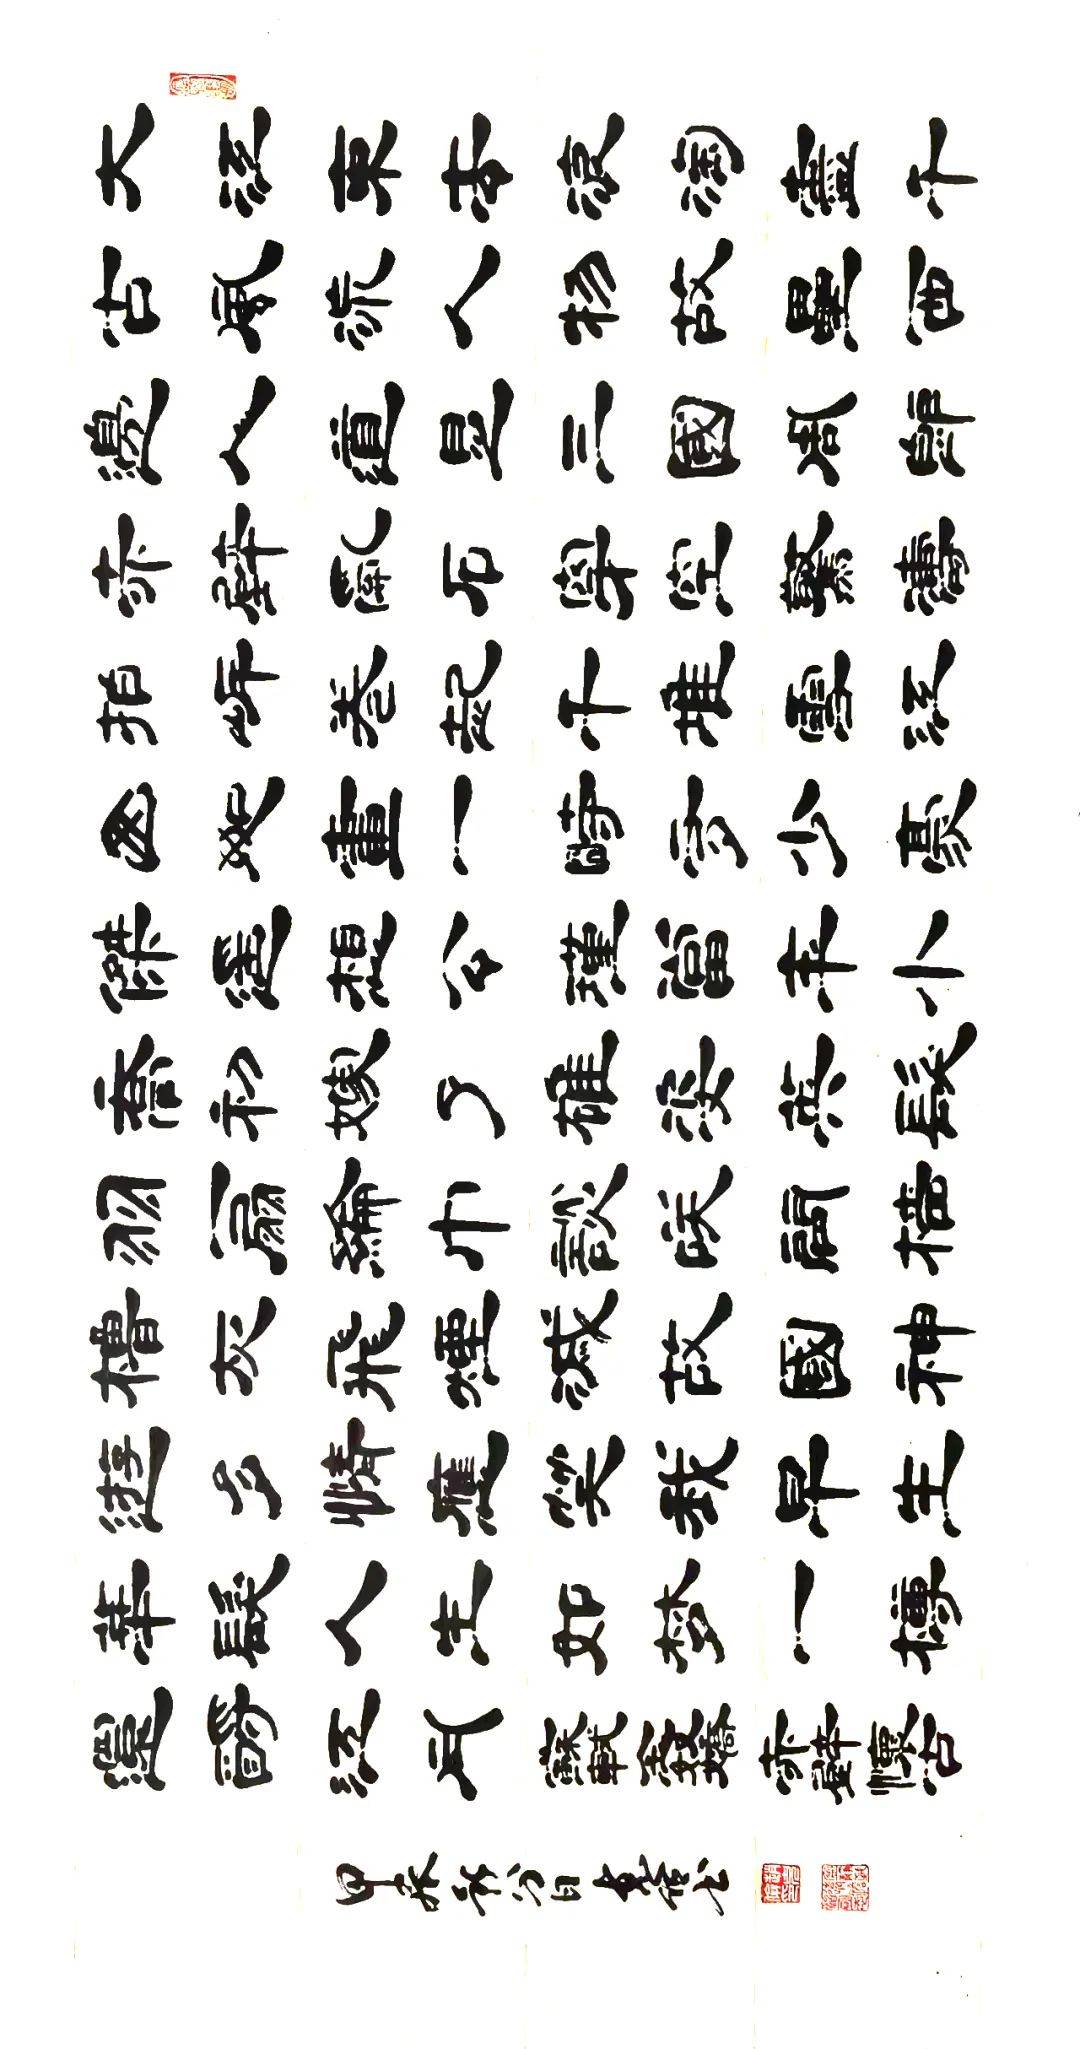 大江東去浪淘盡千
古風流人物故壘西
邊人道是三國周郎
赤壁亂石穿空驚濤
拍岸卷起千堆雪江
山如畫一時多少豪
傑遙想公瑾當年小
喬初嫁了雄姿英發
羽扇綸巾談笑間檣
櫓灰飛煙滅故國神
遊多情應笑我早生
華髮人生如夢一樽
還酹江月蘇軾念奴嬌赤壁懷古
甲辰秋分日書